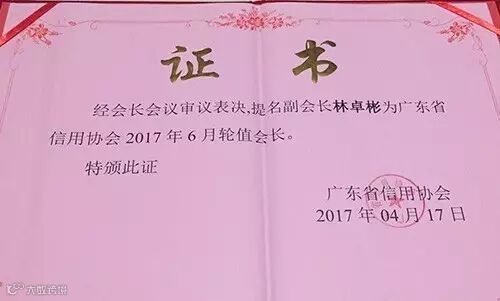 证 书
经会长会议审议表决,提名副会长林卓彬为广东省
信用协会2017年6月轮值会长。
特颁此证
广东省信用协会
2017年04月17日
大数跨境